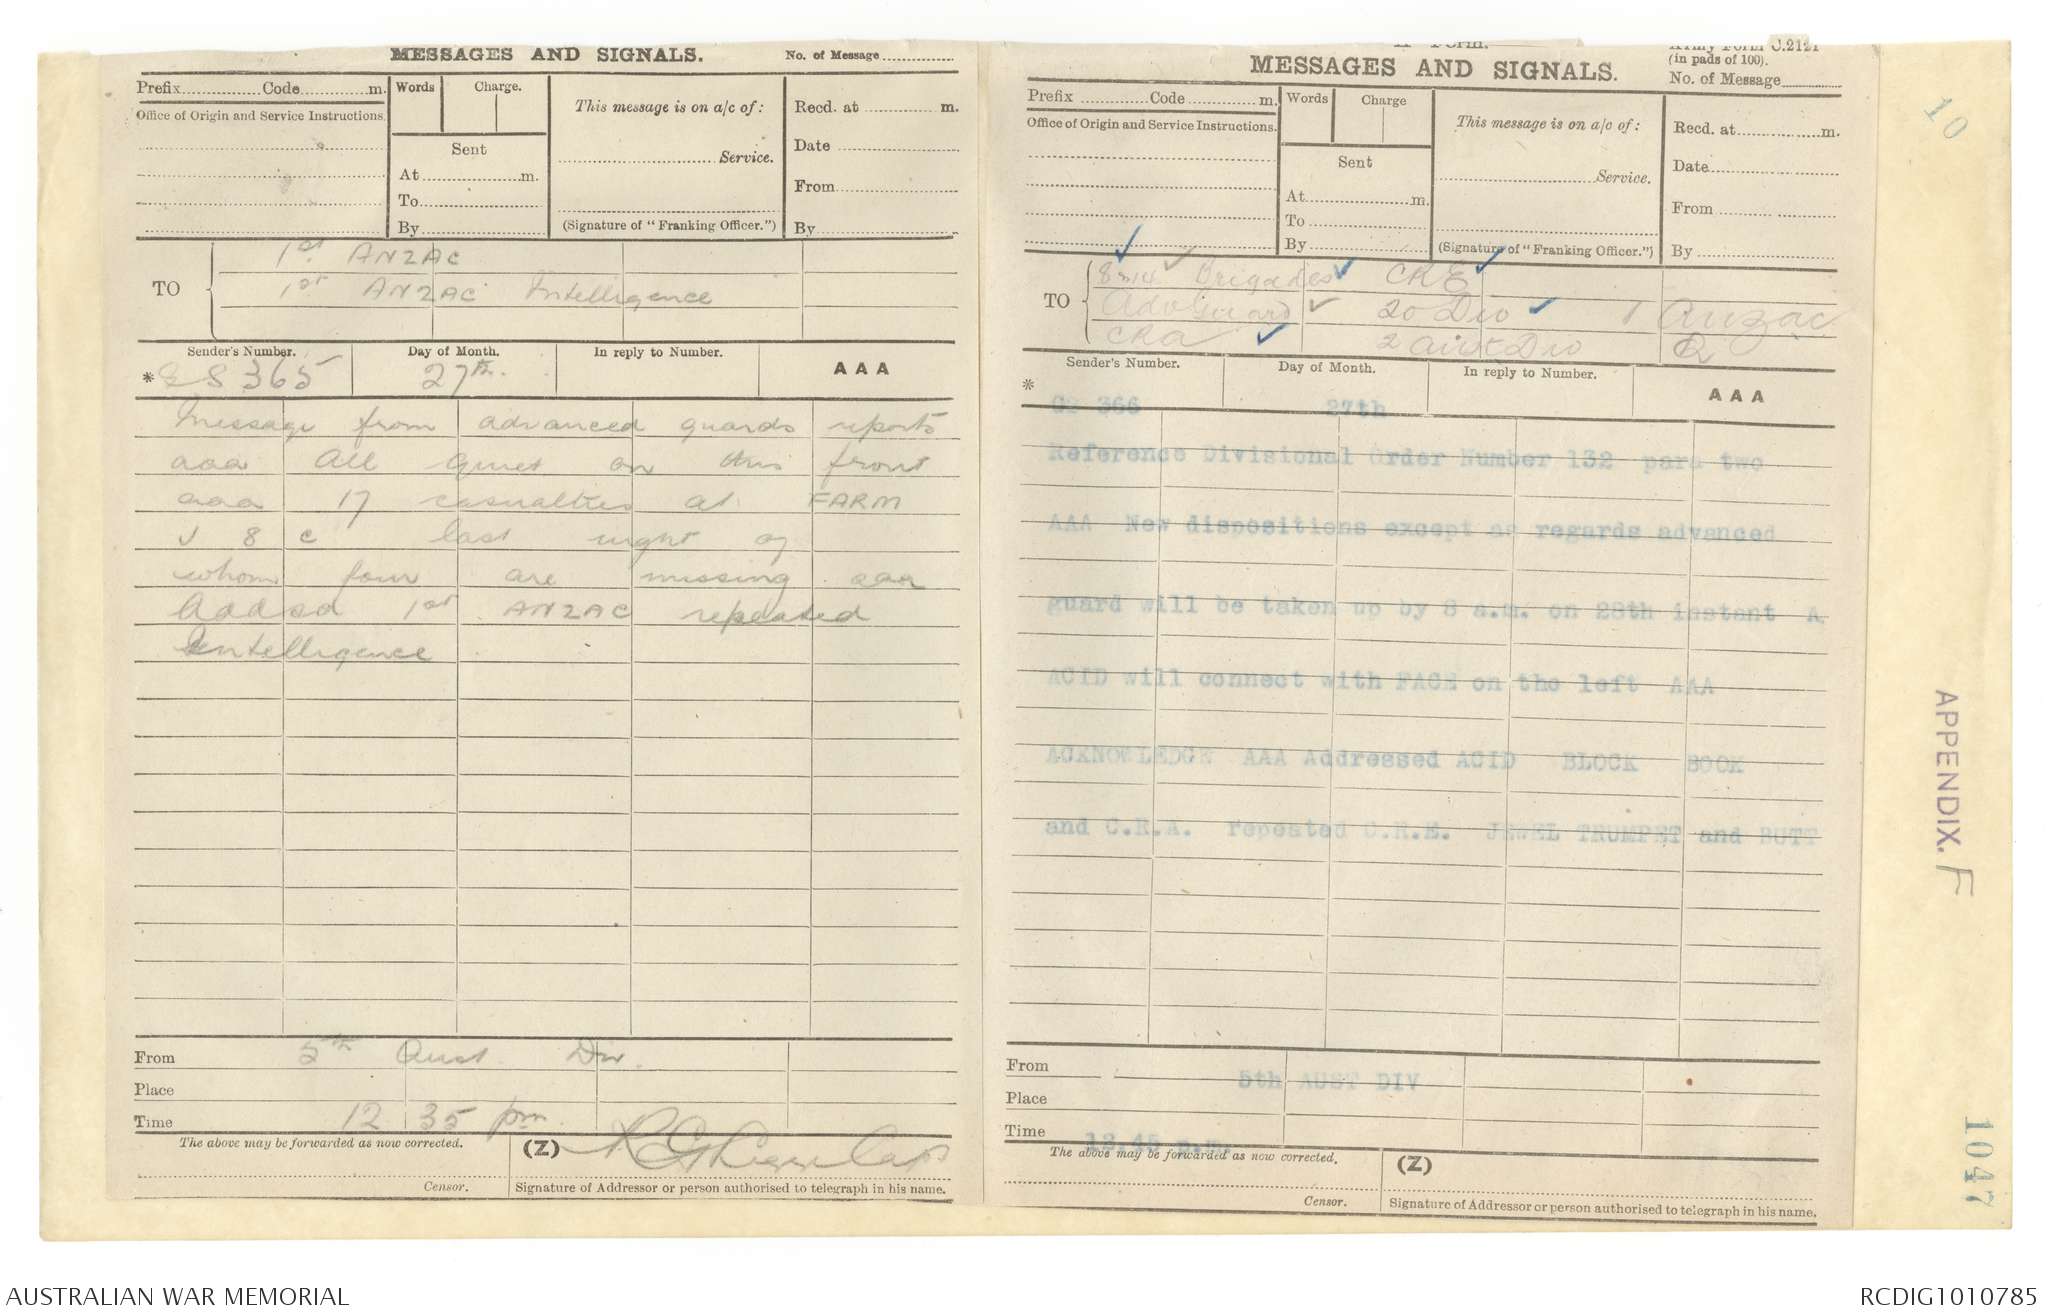 MESSAGES AND SIGNALS.
No. of Message
Prefix Code m.
Words Charge.
This message is on a/c of:
Recd. at m.
Office of Origin and Service Instructions.
Sent
Service.
Date
At m.
From
To
By
(Signature of "Franking Officer.")
By
TO
1st ANZAC
1st ANZAC Intelligence
Sender's Number. Day of Month. In reply to Number. AAA
* 365 27th.
Message from advanced guards reports
aaa All quiet on this front
aaa 17 casualties at FARM
J 8 c last night of
whom four are missing aaa
Addsd 1st ANZAC repeated
Intelligence
From 5th Aust Div.
Place
Time 12 35 pm.
The above may be forwarded as now corrected. (Z)
Censor. Signature of Addressor or person authorised to telegraph in his name.
Army Form C.2121
(in pads of 100).
MESSAGES AND SIGNALS.
No. of Message
Prefix Code m.
Words Charge
This message is on a/c of:
Recd. at m.
Office of Origin and Service Instructions.
Sent
Service.
Date
At m.
From
To
By
(Signature of "Franking Officer.")
By
TO
8 14 Brigades CRE
Adv Guard 20 Div 1 Anzac
CRA 2 Aust Div Q
Sender's Number. Day of Month. In reply to Number. AAA
* 366 27th
Reference Divisional Order Number 132 para two
AAA New dispositions except as regards advanced
guard will be taken up by 8 a.m. on 28th instant A
ACID will connect with FACE on the left AAA
ACKNOWLEDGE AAA Addressed ACID BLOCK BOOK
and C.R.A. repeated C.R.E. JEWEL TRUMPET and BUTT
From 5th AUST DIV
Place
Time
The above may be forwarded as now corrected. (Z)
Censor. Signature of Addressor or person authorised to telegraph in his name.
10
APPENDIX. F
1047
AUSTRALIAN WAR MEMORIAL
RCDIG1010785